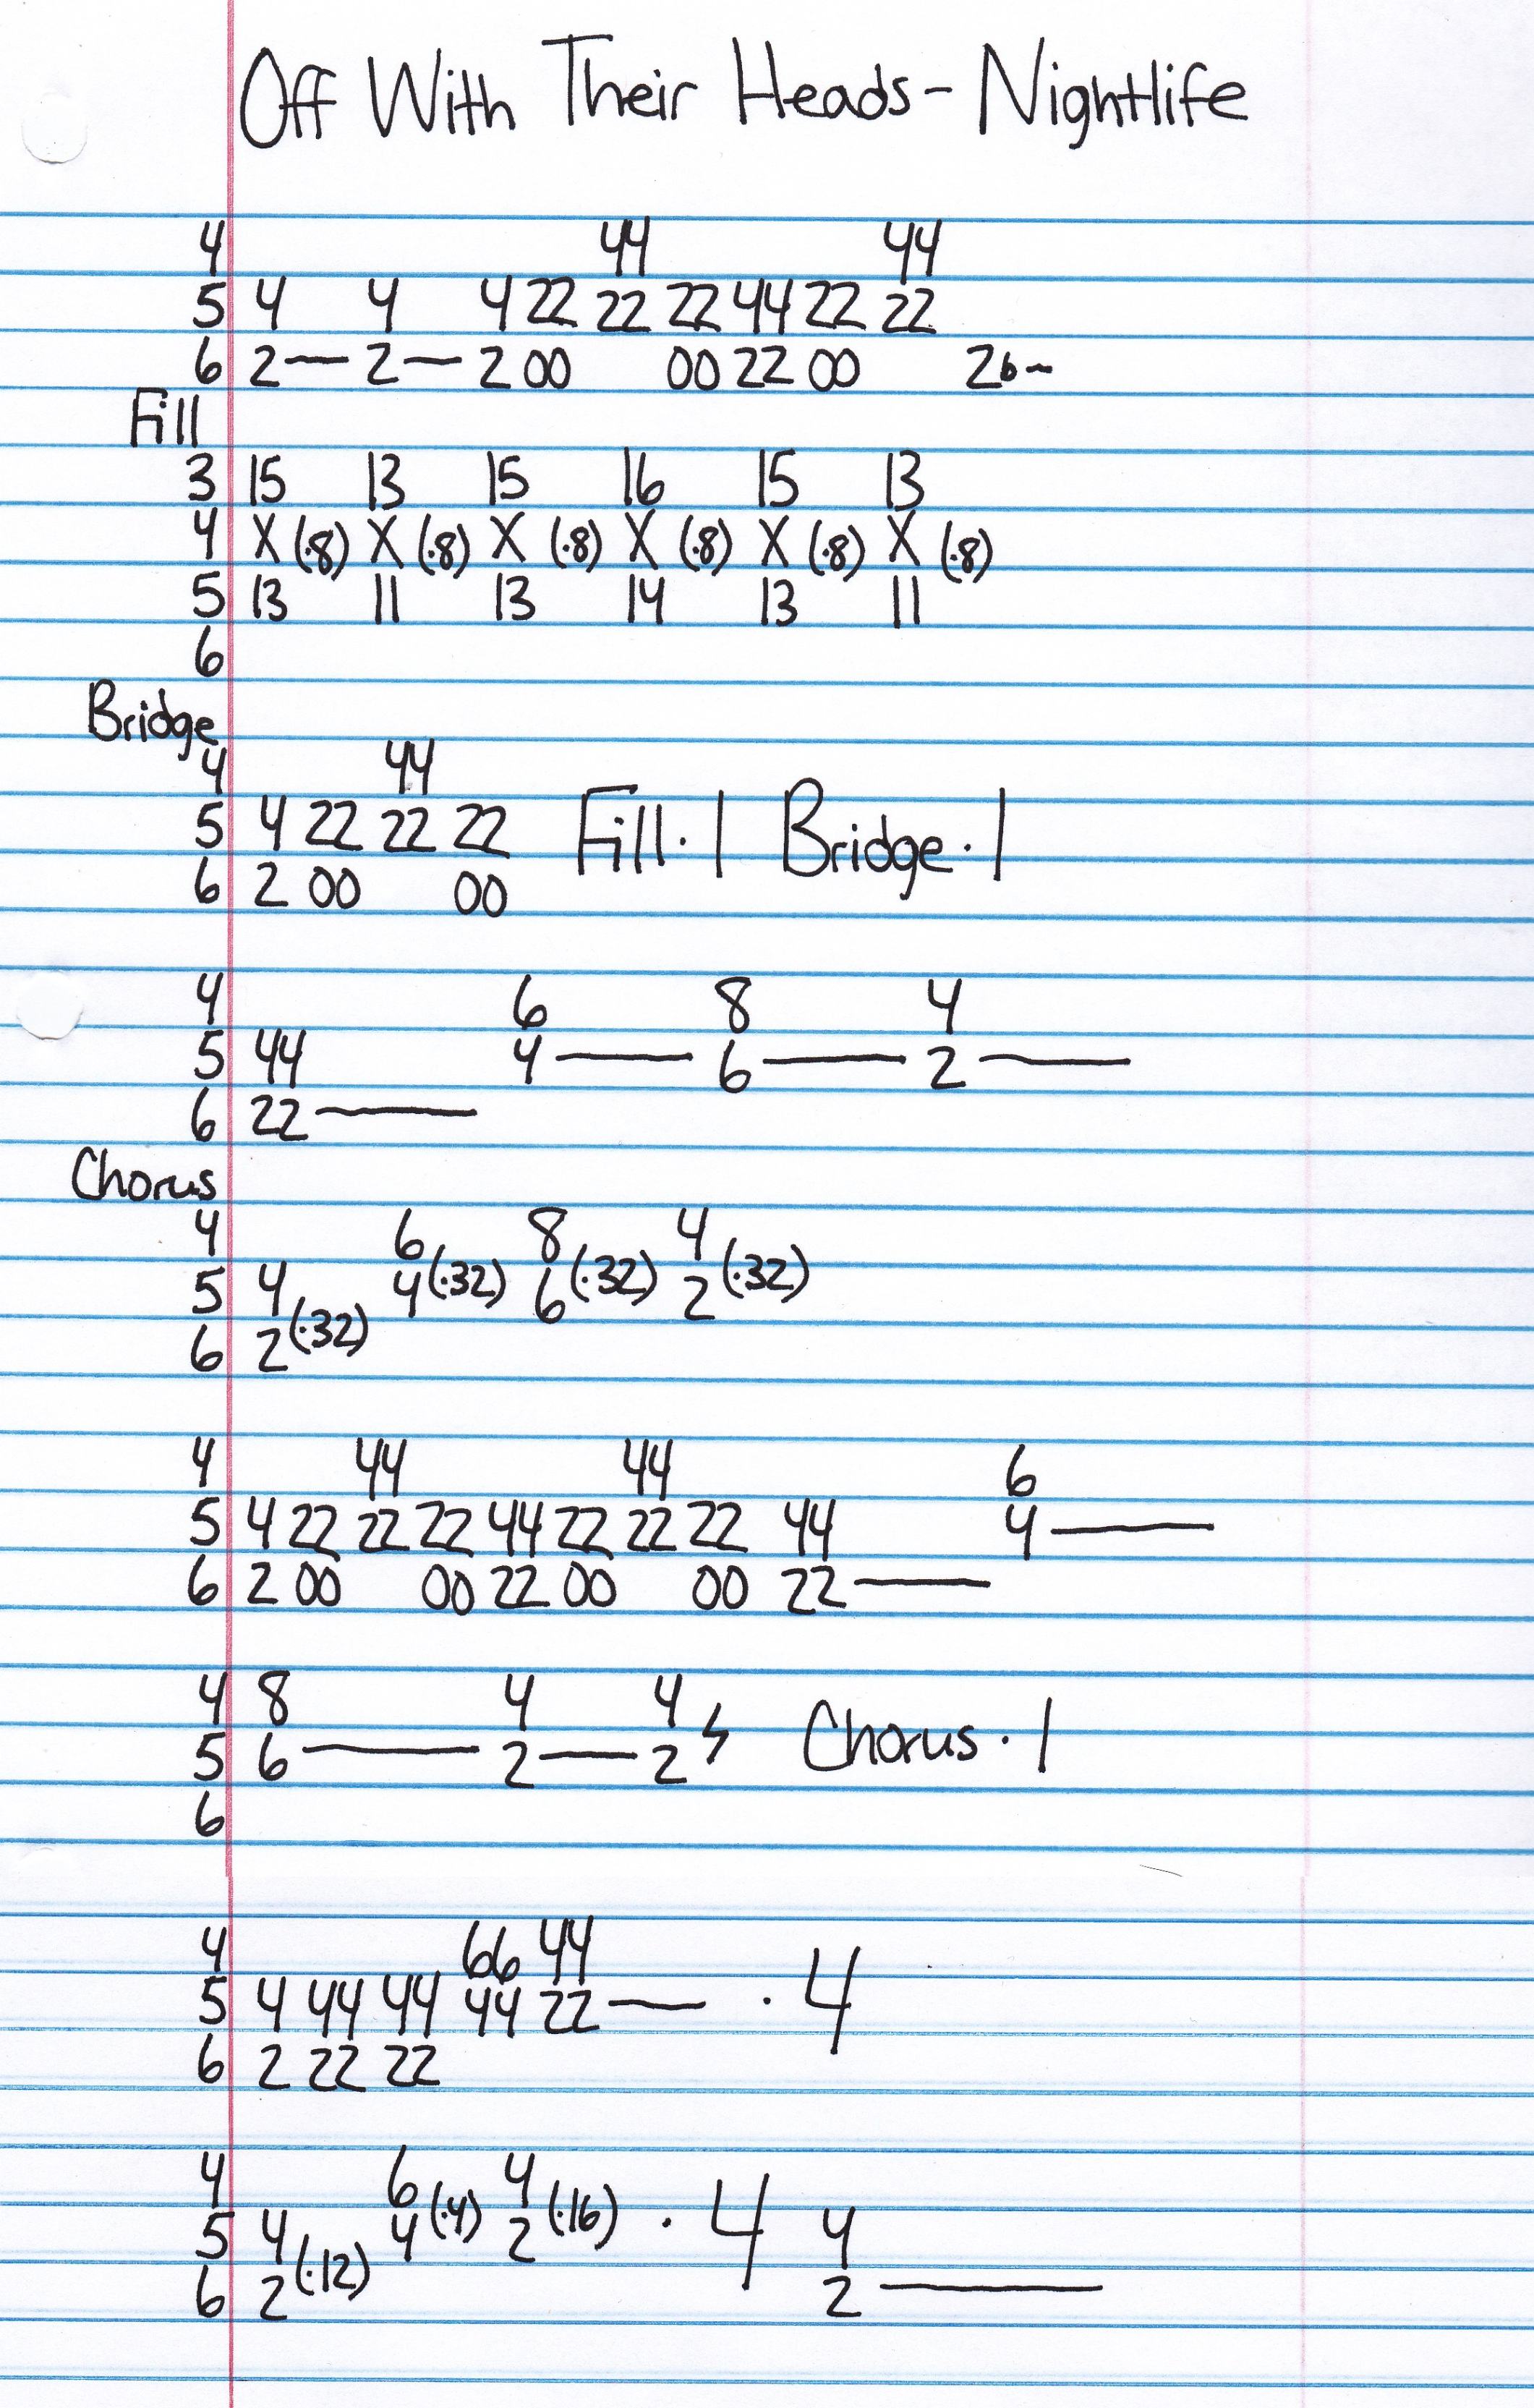 Off With Their Heads - Nightlife
4 44 44
5 4 4 4 22 22 22 44 22 22
6 2 — 2 — 2 00 00 22 00 26~
Fill
3 15 13 15 16 15 13
4 X (·8) X (·8) X (·8) X (·8) X (·8) X (·8)
5 13 11 13 14 13 11
6
Bridge
4 44
5 4 22 22 22 Fill · 1 Bridge · 1
6 2 00 00
4 6 8 4
5 44 4 — 6 — 2 —
6 22 —
Chorus
4 6 8 4
5 4 4 (·32) 6 (·32) 2 (·32)
6 2 (·32)
4 44 44 6
5 4 22 22 22 44 22 22 22 44 4 —
6 2 00 00 22 00 00 22 —
4 8 4 4
5 6 — 2 — 2 Chorus · 1
6
4 66 44
5 4 44 44 44 22 — · 4
6 2 22 22
4 6 4
5 4 4 (·4) 2 (·16) · 4 4
6 2 (·12) 2 —